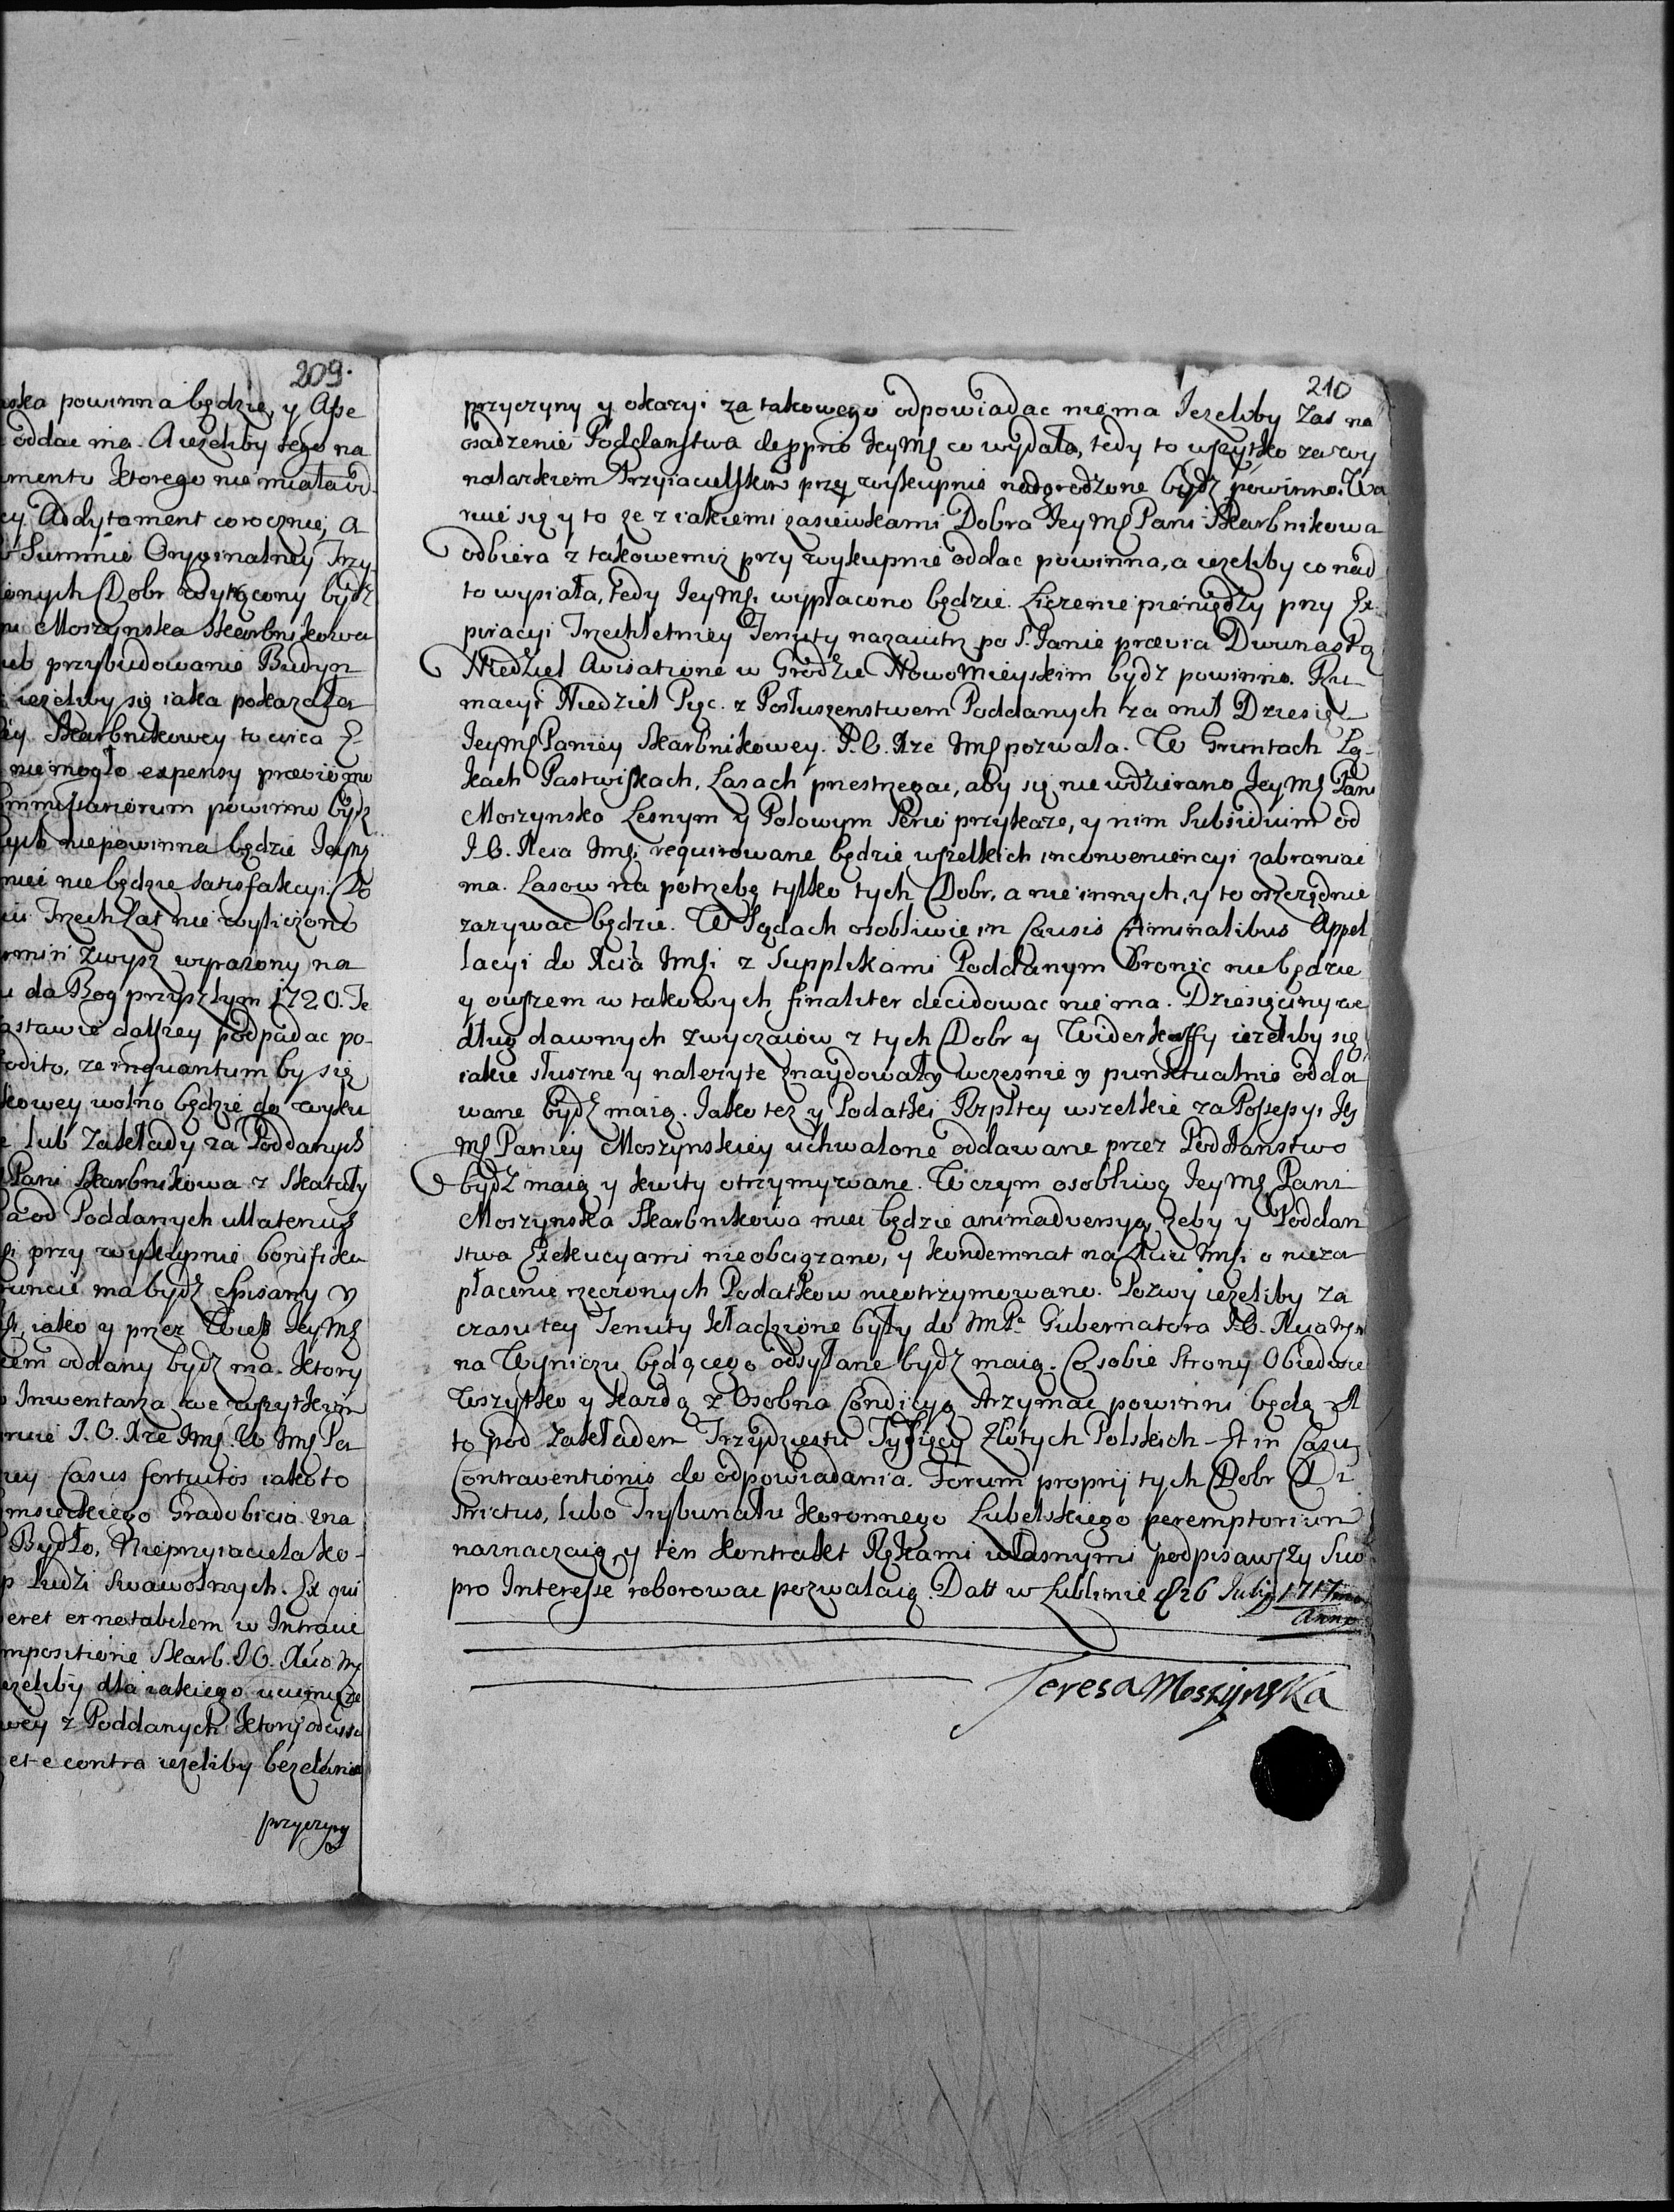 209.
powinna będzie, y Asse
oddac ma. A iezeliby tego na
mentu ktorego nie miała od
cy Addytament corocznie, a
Summie Oryginalney Trzy
onych Dobr wytrącony bydz
Moszynska Skarbnikowa
przybudowanie Budyn
iezeliby się iaka pokazała
Skarbnikowey to circa
nie mogło expensy prævie
powinno bydz
niepowinna będzie Jeymę
nie będzie satisfakcyi. Po
Trzech Lat nie wyliczono
zwysz wyrazony na
da Bog przyszłym 1720. Je
zastawie dalszey podpadac po
ze inquantum by się
kowey wolno będzie do wyku
lub Zakłady za Poddanych
Pani Skarbnikowa z Skatuły
od Poddanych ullatenus
przy wykupnie bonifiko
ma bydz spisany y
iako y przez Jeymę
oddany bydz ma. Ktory
Inwentarza we wszytkim
J. O. Xze Jmę.
Casus fortuitos iako to
Gradobicia
Bydło, Nieprzyiaciela
Ludzi swawolnych. Ex
et notabilem w Intracie
Skarb. J. O.
iezeliby dla iakiego
z Poddanych ktory
et e contra iezeliby bez dania
przyczyny
210
przyczyny y okazyi za takowego odpowiadac niema Iezeliby zas na
osadzenie Poddanstwa de pprio Jeymę co wydała, tedy to wszytko zaruy
natarkiem Przyiacielskim przy wykupnie nadgrodzone bydz powinno. Wa
ruie się y to ze z iakiemi zasiewkami Dobra Jeymę Pani Skarbnikowa
odbiera z takowemiz przy wykupnie oddac powinna, a iezeliby co nad
to wysiała, tedy Jeymę. wypłacono będzie. Liczenie pieniędzy przy Ex
piracyi Trzechletniey Tenuty nazaiutrz po S. Janie prævia Dwunastą
Niedziel Avisatione w Grodzie Nowomieyskim bydz powinno. Ru
macyi Niedziel Pięc. z Posłuszenstwem Poddanych za mil Dziesięc
Jeymę Paniey Skarbnikowey. J. O. Xze Jmę pozwala. W Gruntach Łą
kach Pastwiskach, Lasach przestrzegac, aby się nie wdzierano Jeymę Pani
Moszynska Lesnym y Polowym pilnie przykaze, y nim Subsidium od
J. O. Xcia Jmę. requirowane będzie wszelkich inconveniencyi zabraniac
ma. Lasow na potrzebę tylko tych Dobr, a nie innych, y to oszczędnie
zazywac będzie. W Sądach osobliwie in Causis Criminalibus Appel
lacyi do Xcia Jmsi z Supplikami Poddanym bronic nie będzie
y owszem w takowych finaliter decidowac nie ma. Dziesięciny we
dług dawnych zwyczaiow z tych Dobr y Widerkaffy iezeliby się
iakie słuszne y nalezyte znaydowały wczesnie y punktualnie odda
wane bydz maią. Jako tez y Podatki Rzpltey wszelkie za Possessyi Jey
Mę Paniey Moszynskiey uchwalone oddawane przez Poddanstwo
bydz maią y kwity otrzymywane. W czym osobliwą Jeymę Pani
Moszynska Skarbnikowa miec będzie animadversyą, zeby y Poddan
stwa Exekucyami nie obciązano, y kondemnat na Xciu Jmsi o nieza
płacenie rzeczonych Podatkow nieotrzymowano. Pozwy iezeliby za
czasu tey Tenuty kładzione były do JmPa Gubernatora J. O. Xcia Jmę
na Wyniczu będącego odsyłane bydz maią. Co sobie Strony Obiedwie
Wszytko y kazdą z Osobna Condicyą trzymac powinni będą. A
to pod Zakładem Trzydziestu Tysięcy Złotych Polskich. Et in Casu
Contraventionis do odpowiadania. Forum proprij tych Dobr Di
strictus, lubo Trybunału Koronnego Lubelskiego peremptorium
naznaczaią, y ten kontrakt Rękami własnymi podpisawszy Suo
pro Interesse roborowac pozwalaią. Datt w Lublinie d 26 Julij 1717mo
Anno
Teresa Moszynska